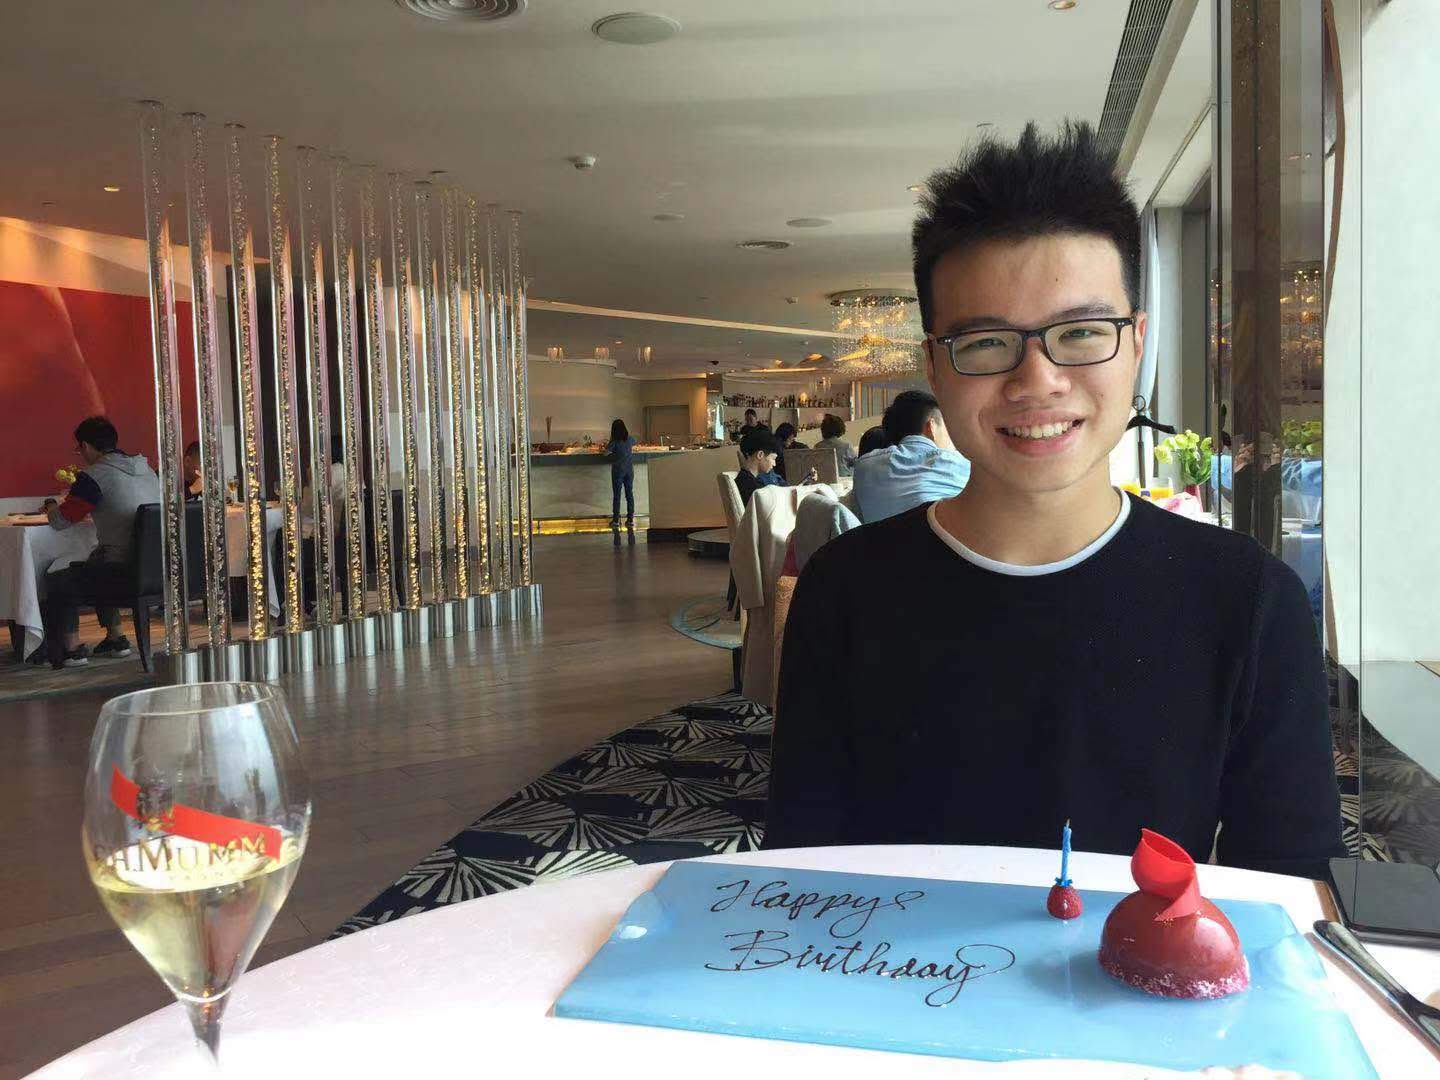 G.H.MUMM
Happy
Birthday